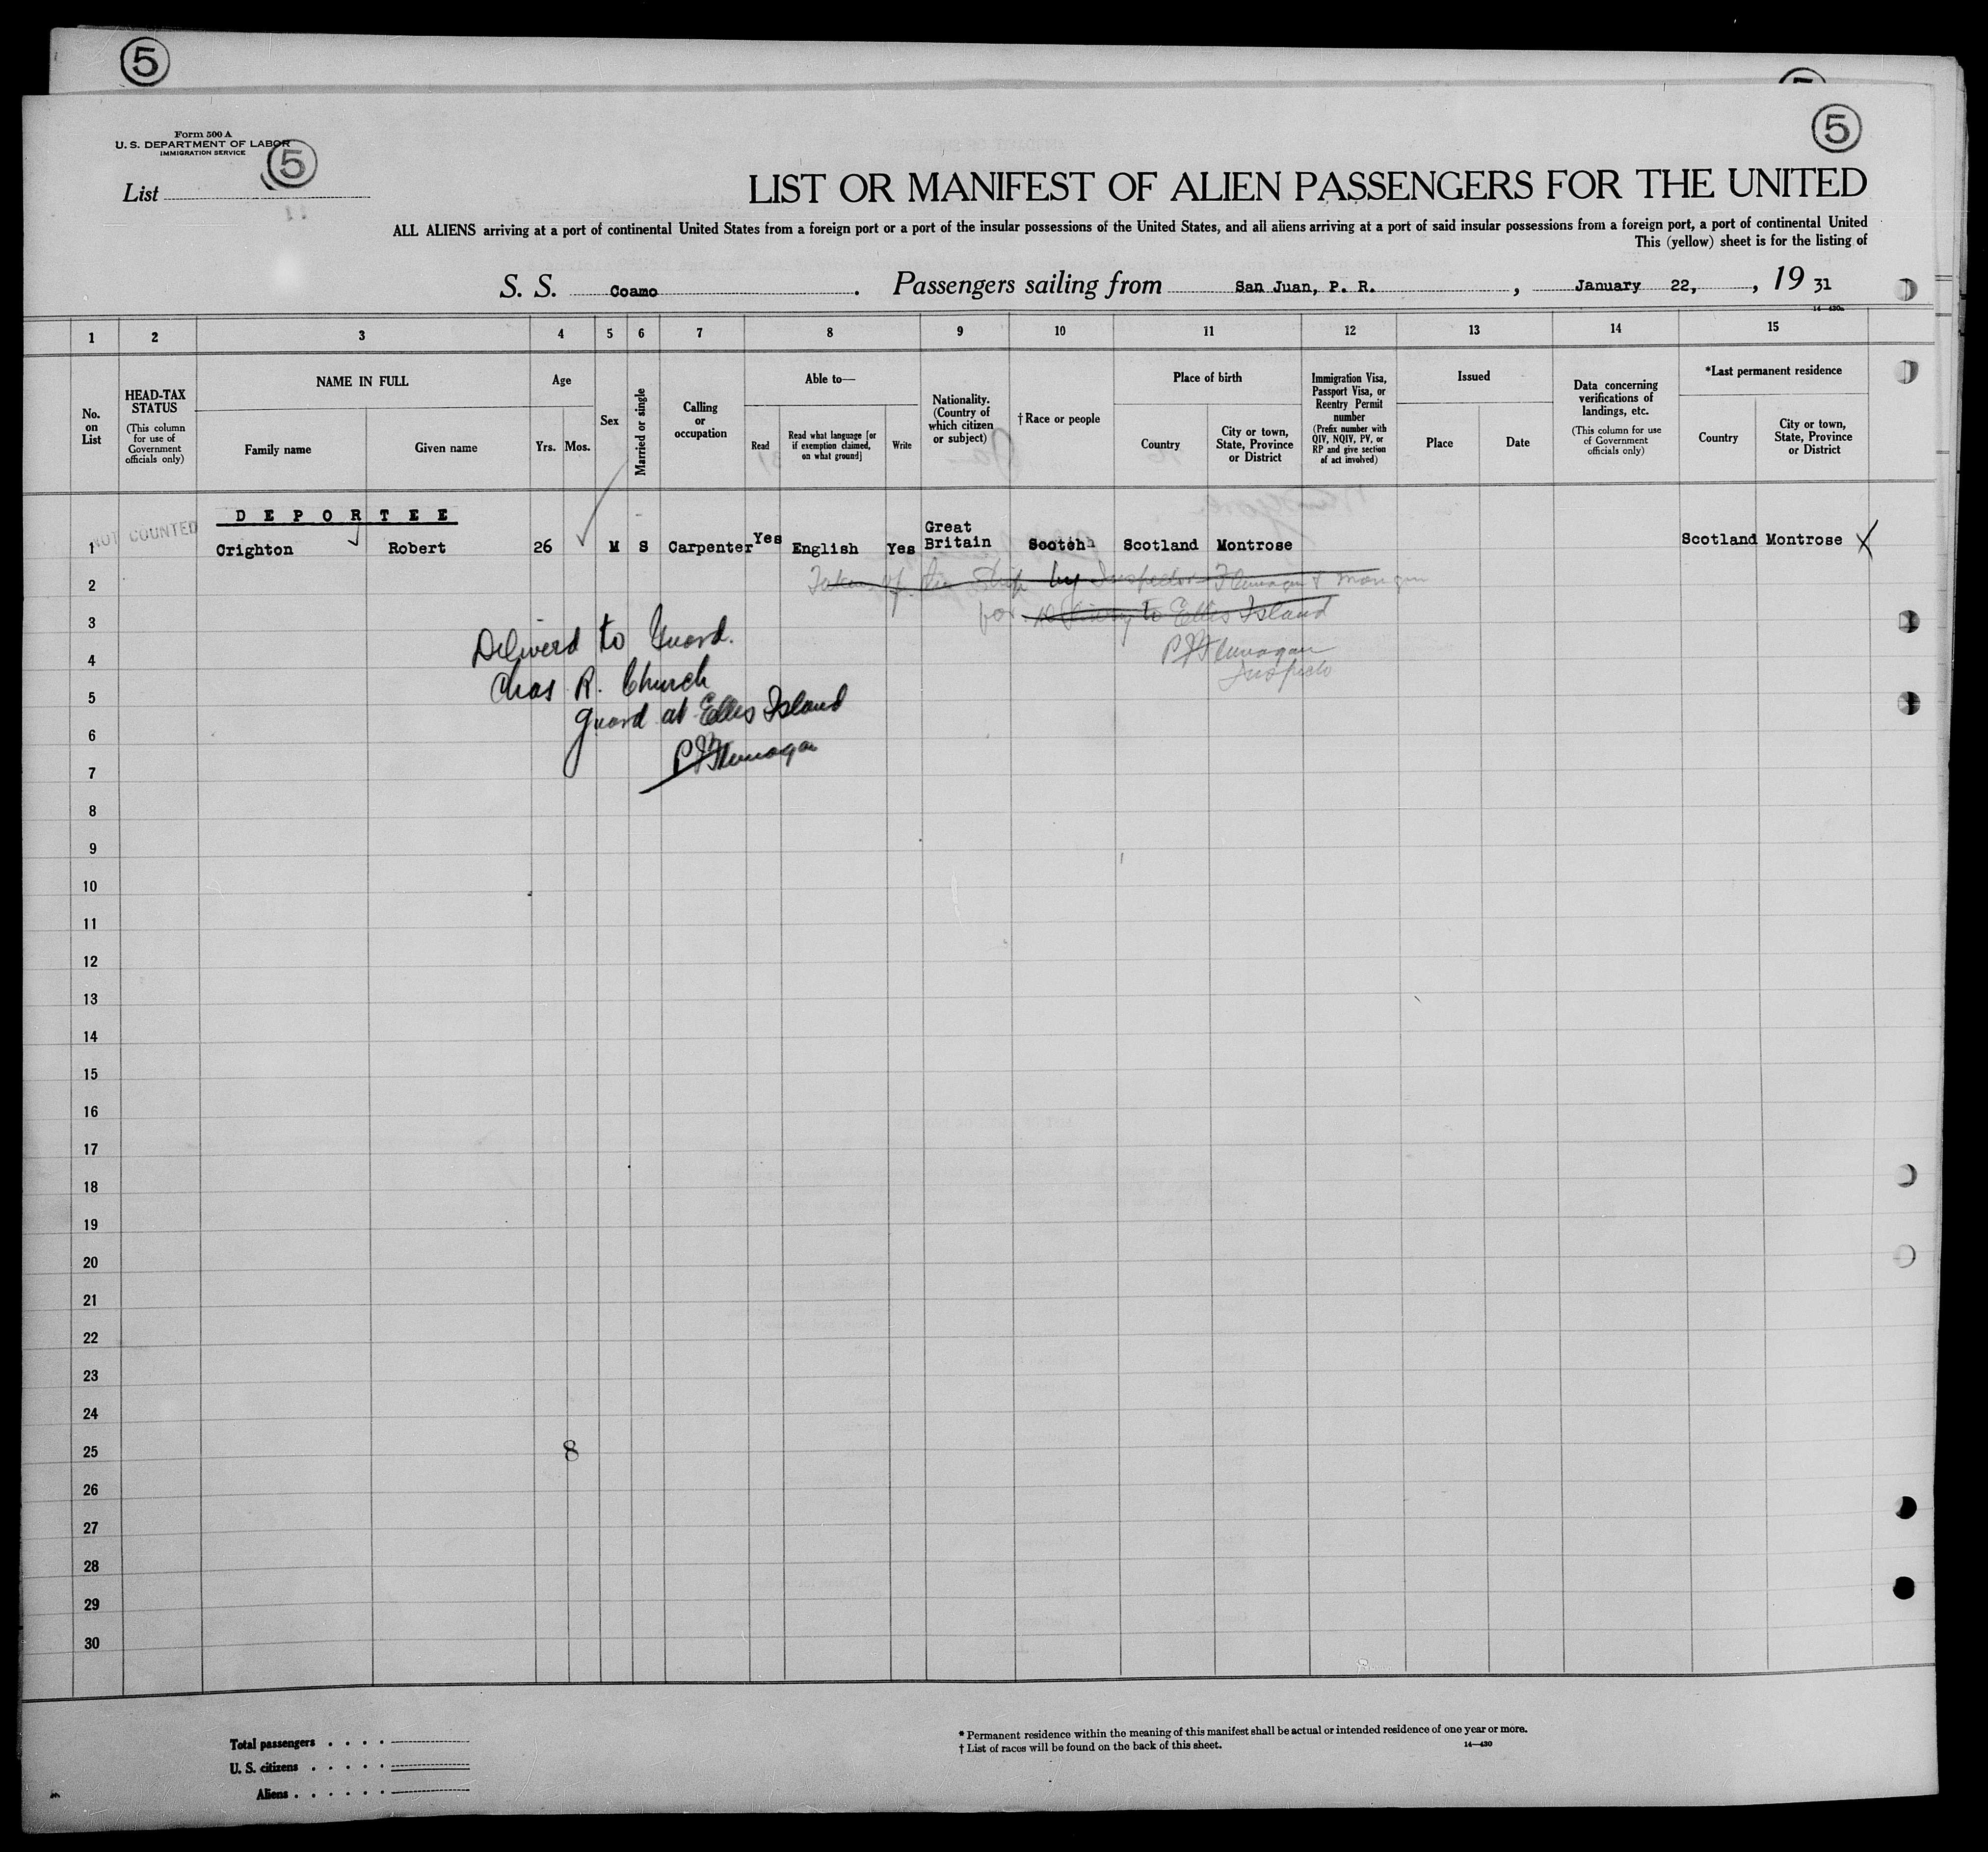 5
5
Form 500 A
U. S. DEPARTMENT OF LABOR
IMMIGRATION SERVICE
5
List
LIST OR MANIFEST OF ALIEN PASSENGERS FOR THE UNITED
ALL ALIENS arriving at a port of continental United States from a foreign port or a port of the insular possessions of the United States, and all aliens arriving at a port of said insular possessions from a foreign port, a port of continental United
This (yellow) sheet is for the listing of
S. S. Coamo. Passengers sailing from San Juan, P. R., January 22, , 19 31
14—430a
1 2 3 4 5 6 7 8 9 10 11 12 13 14 15
No. on List
HEAD-TAX STATUS
(This column for use of Government officials only)
NAME IN FULL
Family name
Given name
Age
Yrs. Mos.
Sex
Married or single
Calling or occupation
Able to—
Read
Read what language [or if exemption claimed, on what ground]
Write
Nationality. (Country of which citizen or subject)
† Race or people
Place of birth
Country
City or town, State, Province or District
Immigration Visa, Passport Visa, or Reentry Permit number
(Prefix number with QIV, NQIV, PV, or RP and give section of act involved)
Issued
Place
Date
Data concerning verifications of landings, etc.
(This column for use of Government officials only)
*Last permanent residence
Country
City or town, State, Province or District
DEPORTEE
NOT COUNTED
1 Crighton Robert 26 M S Carpenter Yes English Yes Great Britain Scotch Scotland Montrose Scotland Montrose X
2 Taken off the ship by Inspector Flunagan &
3 for delivery to Ellis Island
Deliverd to Guard.
4 P J Flunagan
Inspector
Chas R. Church
5
guard at Ellis Island
6
P J Flunagan
7
8
9
10
11
12
13
14
15
16
17
18
19
20
21
22
23
24
25 8
26
27
28
29
30
Total passengers . . . .
U. S. citizens . . . . .
Aliens . . . . . .
* Permanent residence within the meaning of this manifest shall be actual or intended residence of one year or more.
† List of races will be found on the back of this sheet.
14—430